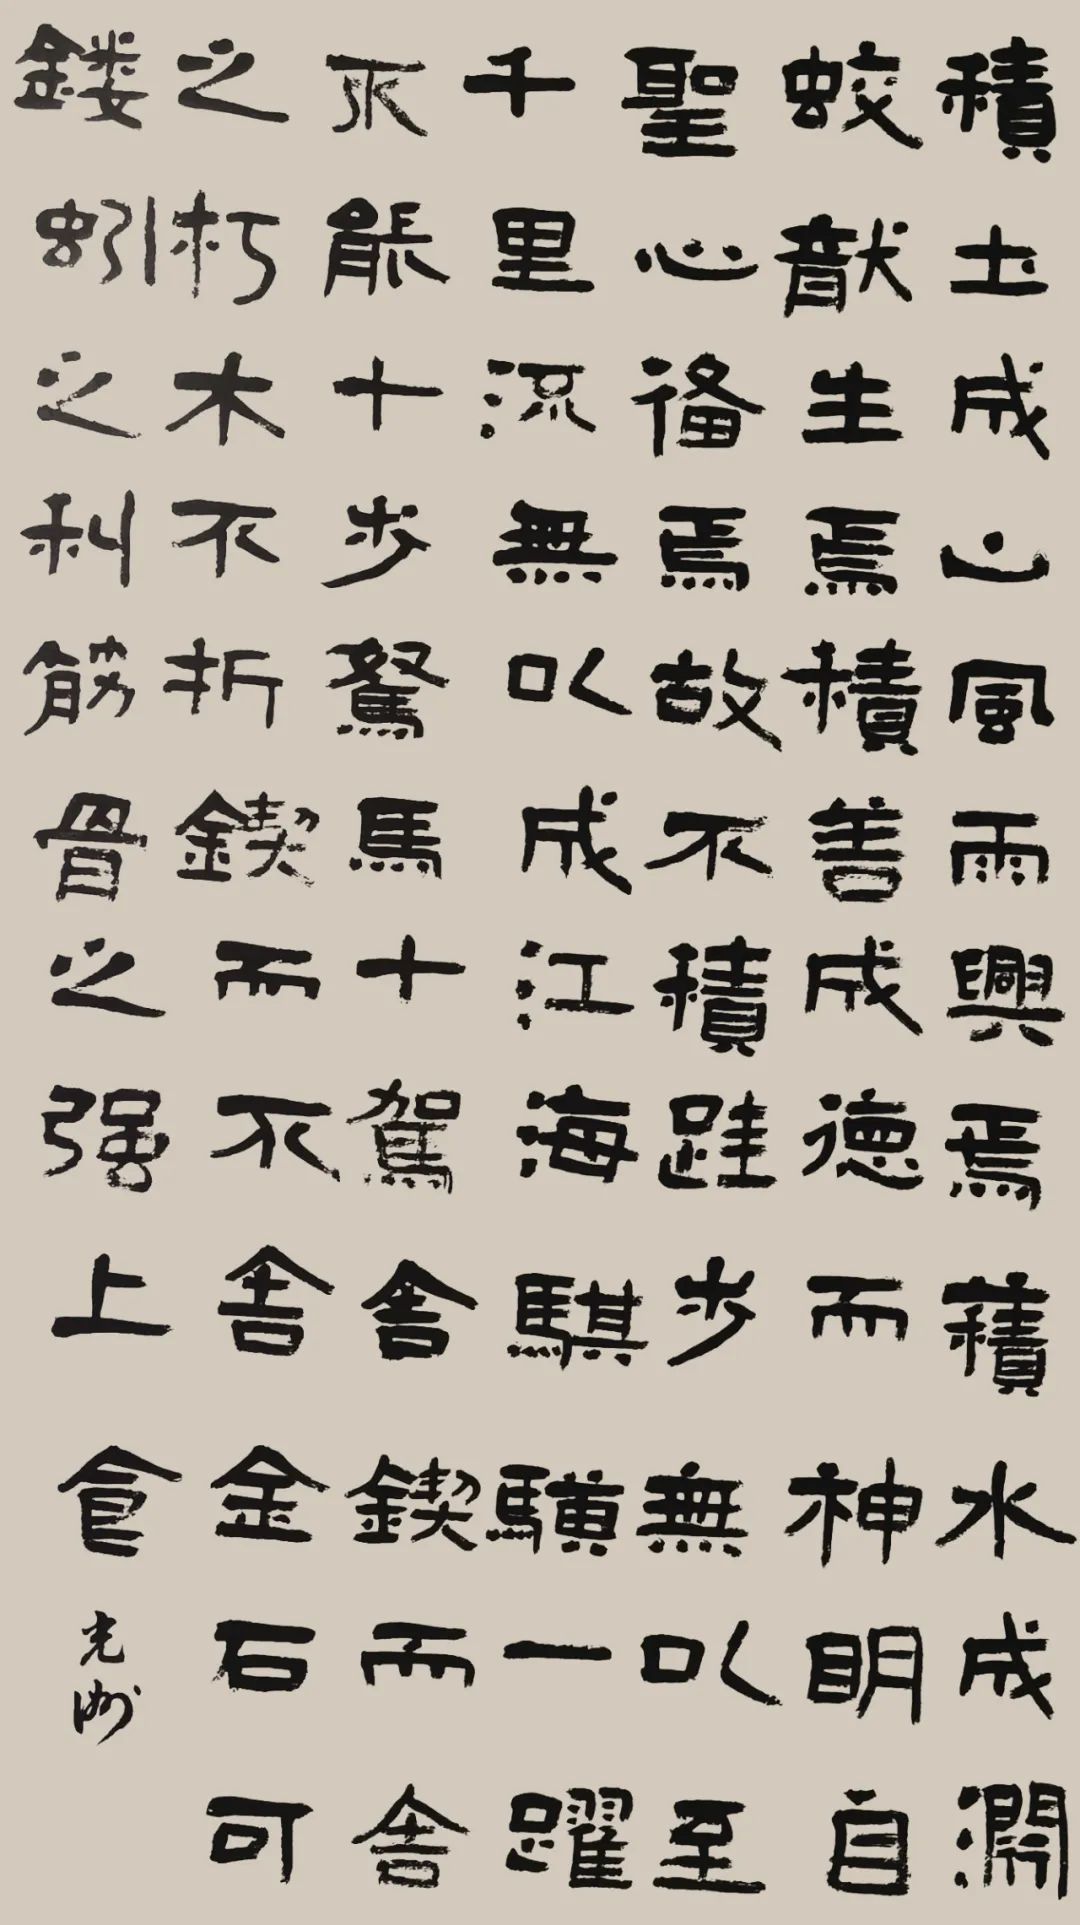 積土成山風雨興焉積水成淵
蛟龍生焉積善成德而神眀自
聖心備焉故不積跬步無以至
千里流無以成江海騏驥一躍
不能十步駑馬十駕舍鍥而舍
之朽木不折鍥而不舍金石可
鏤蚓之利筋骨之强上食
光洲